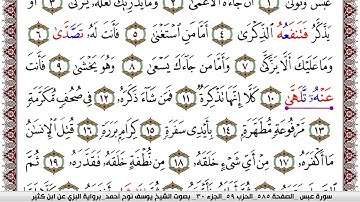 عَبَسَ وَتَوَلَّىٰ ١ أَن جَآءَهُ ٱلْأَعْمَىٰ ٢ وَمَا يُدْرِيكَ لَعَلَّهُۥ يَزَّكَّىٰ ٣ أَوْ
يَذَّكَّرُ فَتَنفَعُهُ ٱلذِّكْرَىٰ ٤ أَمَّا مَنِ ٱسْتَغْنَىٰ ٥ فَأَنتَ لَهُۥ تَصَّدَّىٰ ٦
وَمَا عَلَيْكَ أَلَّا يَزَّكَّىٰ ٧ وَأَمَّا مَن جَآءَكَ يَسْعَىٰ ٨ وَهُوَ يَخْشَىٰ ٩ فَأَنتَ
عَنْهُۥ تَّلَهَّىٰ ١٠ كَلَّا إِنَّهَا تَذْكِرَةٌ ١١ فَمَن شَآءَ ذَكَرَهُۥ ١٢ فِي صُحُفٍ مُّكَرَّمَةٍ
١٣ مَّرْفُوعَةٍ مُّطَهَّرَةٍ ١٤ بِأَيْدِي سَفَرَةٍ ١٥ كِرَامٍ بَرَرَةٍ ١٦ قُتِلَ ٱلْإِنسَٰنُ
مَا أَكْفَرَهُۥ ١٧ مِنْ أَيِّ شَيْءٍ خَلَقَهُۥ ١٨ مِن نُّطْفَةٍ خَلَقَهُۥ فَقَدَّرَهُۥ ١٩ ثُمَّ
سورة عبس _ الصفحة ٥٨٥ _ الحزب ٥٩ _ الجزء ٣٠ _ بصوت الشيخ يوسف نوح أحمد _ برواية البزي عن ابن كثير